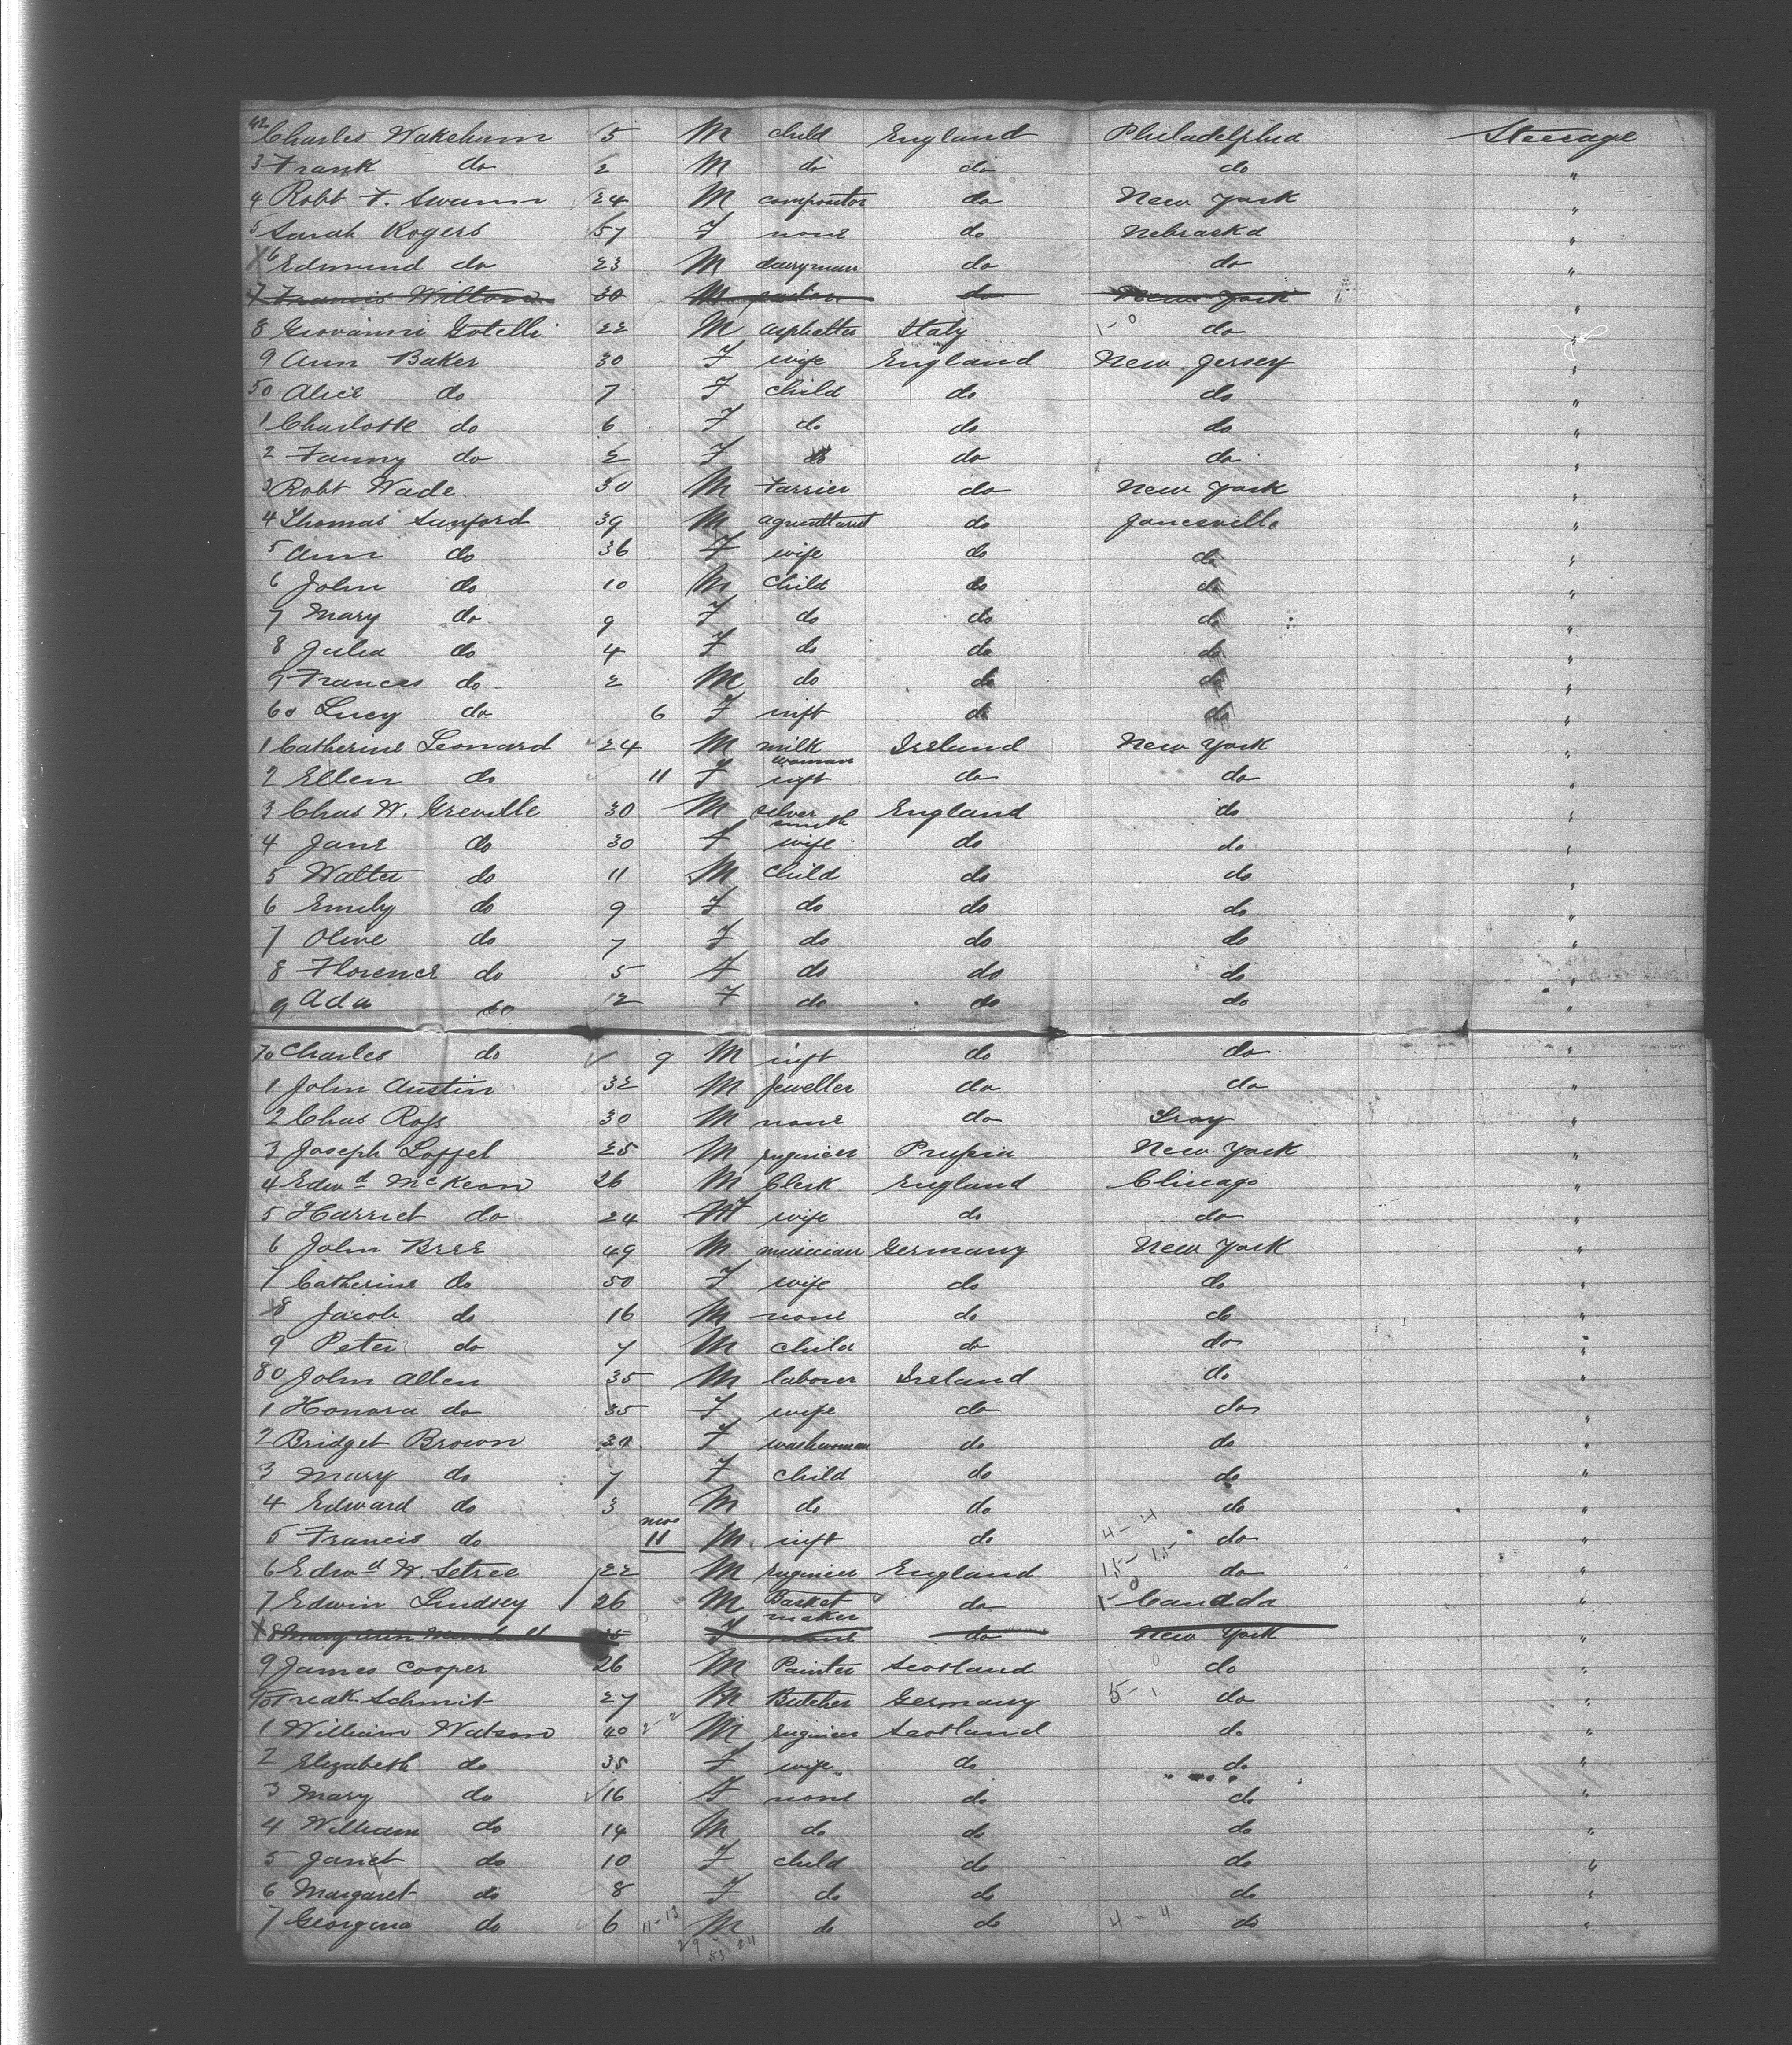 42 Charles Wakeham 5 M child England Philadelphia Steerage
3 Frank do 2 M do do do "
4 Robt F. Swann 24 M compositor do New York "
5 Sarah Rogers 57 F none do Nebraska "
X 6 Edmund do 23 M dairyman do do "
7 Francis Wilton 30 M do New York "
8 Giovanni Gotelli 22 M Italy 1-0 do "
9 Ann Baker 30 F wife England New Jersey "
50 Alice do 7 F child do do "
1 Charlotte do 6 F do do do "
2 Fanny do 2 F do do do "
3 Robt Wade 30 M Farrier do New York "
4 Thomas Sanford 39 M agriculturist do Janesville "
5 Ann do 36 F wife do do "
6 John do 10 M child do do "
7 Mary do 9 F do do do "
8 Julia do 4 F do do do "
9 Frances do 2 M do do do "
60 Lucy do 6 F inft do do "
1 Catherine Leonard 24 M milk woman Ireland New York "
2 Ellen do 11 F inft do do "
3 Chas W. Greville 30 M silver smith England do "
4 Jane do 30 F wife do do "
5 Walter do 11 M child do do "
6 Emily do 9 F do do do "
7 Olive do 7 F do do do "
8 Florence do 5 F do do do "
9 Ada do 2 F do do do "
70 Charles do 9 M inft do do "
1 John Austin 32 M Jeweller do do "
2 Chas Ross 30 M none do Troy "
3 Joseph Loffel 25 M engineer Prussia New York "
4 Edwd McKeon 26 M Clerk England Chicago "
5 Harriet do 24 F wife do do "
6 John Bree 49 M musician Germany New York "
7 Catherine do 50 F wife do do "
X8 Jacob do 16 M none do do "
9 Peter do 7 M child do do "
80 John Allen 35 M laborer Ireland do "
1 Honora do 35 F wife do do "
2 Bridget Brown 30 F washwoman do do "
3 Mary do 7 F child do do "
4 Edward do 3 M do do do "
5 Francis do mos 11 M inft do 4-4 do "
6 Edwd W. Setree 22 M engineer England 15-15 do "
7 Edwin Lindsey 26 M Basket maker do 1-0 Canada "
X 8 Mary Ann F none do New York "
9 James Cooper 26 M Painter Scotland do "
90 Fredk Schmit 27 M Butcher Germany 5-1 do "
1 William Watson 40 2-2 M Engineer Scotland do "
2 Elizabeth do 35 F wife do do "
3 Mary do 16 F none do do "
4 William do 14 M do do do "
5 Janet do 10 F child do do "
6 Margaret do 8 F do do do "
7 Georgina do 6 11-13 M do do 4-4 do "
29 53 24